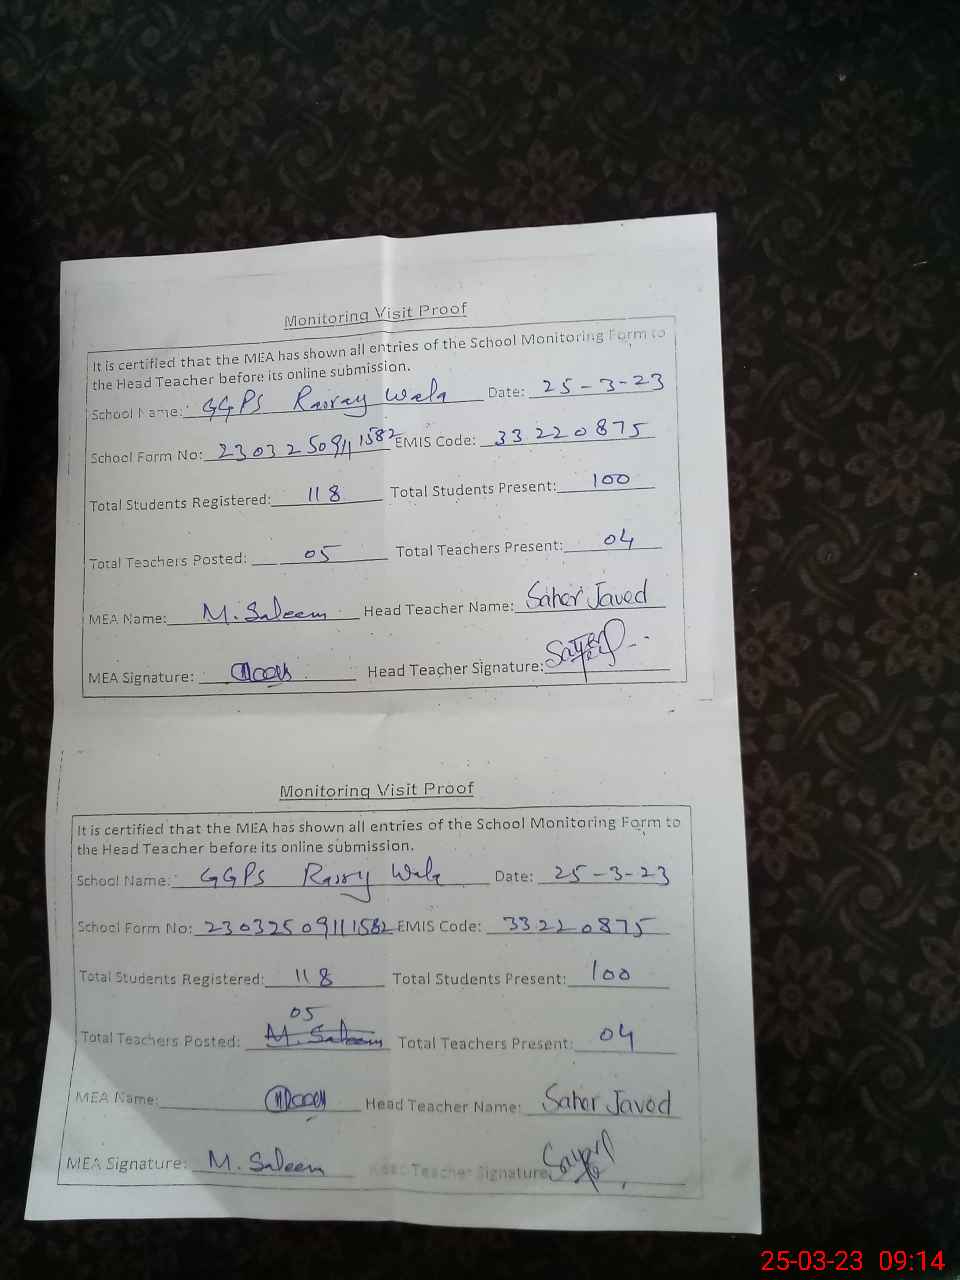 Monitoring Visit Proof
It is certified that the MEA has shown all entries of the School Monitoring Form to
the Head Teacher before its online submission.
School Name: GGPS Wala Date: 25-3-23
School Form No: 2303250911 1582 EMIS Code: 33220875
Total Students Registered: 118 Total Students Present: 100
Total Teachers Posted: 05 Total Teachers Present: 04
MEA Name: M. Saleem Head Teacher Name: Saher Javed
MEA Signature: Head Teacher Signature:
Monitoring Visit Proof
It is certified that the MEA has shown all entries of the School Monitoring Form to
the Head Teacher before its online submission.
School Name: GGPS Wala Date: 25-3-23
School Form No: 23032509111582 EMIS Code: 33220875
Total Students Registered: 118 Total Students Present: 100
05
Total Teachers Posted: M. Saleem Total Teachers Present: 04
MEA Name: Head Teacher Name: Saher Javed
MEA Signature: M. Saleem Head Teacher Signature:
25-03-23 09:14